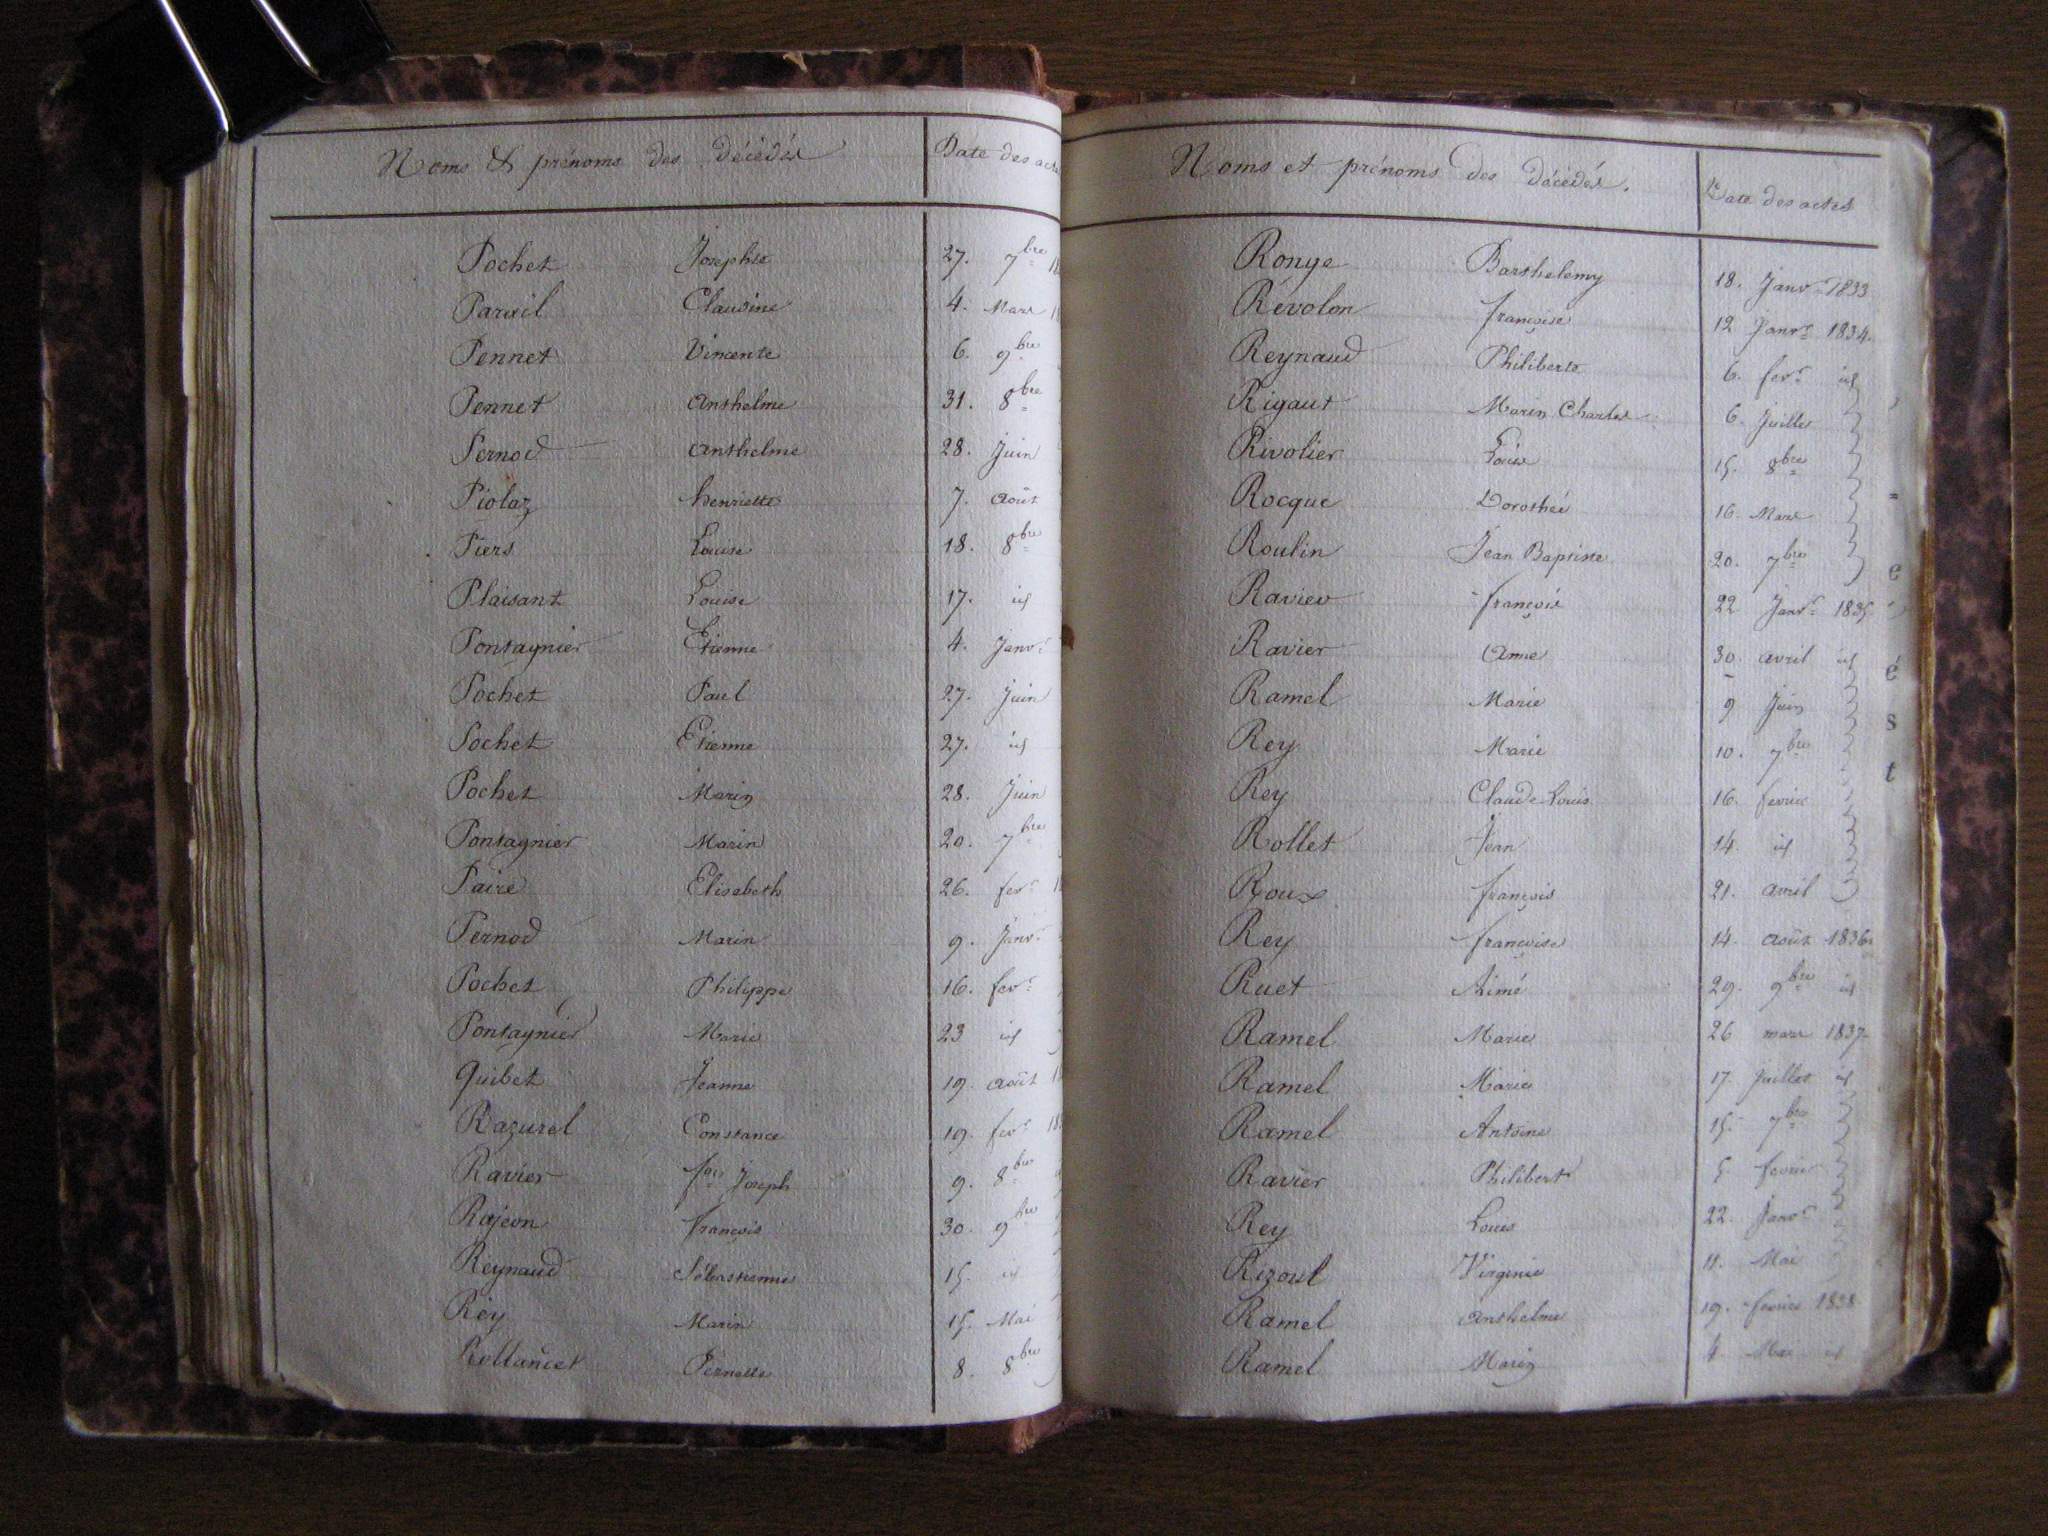 Noms & prénoms des décédés Date des actes
Pochet Josephte 27. 7bre 18
Parixil Claudine 4. Mars 1
Pennet Vincente 6. 9bre
Pennet Anthelme 31. 8bre
Pernod Anthelme 28. Juin
Piolaz henriette 7. Août
Piers Louise 18. 8bre
Plaisant Louise 17. id
Pontagnier Etienne 4. Janvr
Pochet Paul 27. Juin
Pochet Etienne 27. id
Pochet Marin 28. Juin
Pontagnier Marin 20. 7bre
Paire Elisabeth 26. fevr 1
Pernod Marin 9. Janvr
Pochet Philippe 16. fevr
Pontagnier Marie 23 id
Quibet Jeanne 19. Août 1
Razurel Constance 19. fevr 18
Ravier fois Joseph 9. 8bre
Rojeon françois 30. 9bre
Reynaud Sébastienne 15. id
Rey Marin 15. Mai
Rollancet Pernette 8. 8bre
Noms et prénoms des décédés. Date des actes
Ronge Barthelemy 18. Janvr 1833
Révolon françoise 12 Janvr 1834.
Reynaud Philiberte 6. fevr id
Rigaut Marin Charles 6. Juillet
Rivolier Louis 15. 8bre
Rocque Dorothée 16. Mars
Roulin Jean Baptiste 20. 7bre
Ravier françois 22 Janvr 1835
Ravier Anne 30. avril id
Ramel Marie 9 Juin
Rey Marie 10. 7bre
Rey Claude Louis 16. fevrier
Rollet Jean 14. id
Roux françois 21. avril
Rey françoise 14. Août 1836
Ruet Aimé 29. 9bre id
Ramel Marie 26 mars 1837
Ramel Marie 17. Juillet id
Ramel Antoine 15. 7bre
Ravier Philibert 5. fevrier
Rey Louis 22. Janvr
Rizoul Virginie 11. Mai
Ramel Anthelme 19. fevrier 1838
Ramel Marin 4. Mai id
e
é
s
t